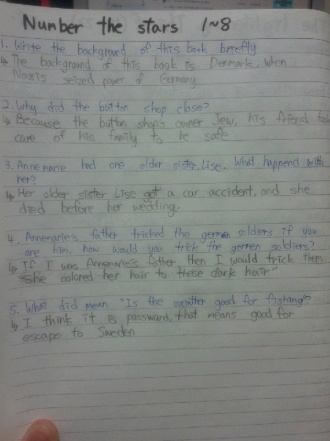 Number the stars 1~8
1. Write the background of this book breifly
↳ The background of this book is Denmark, when
Nazis seized power of Germany
2. Why did the button shop close?
↳ Because the button shop's owner Jew, his friend
care of his family to be safe
3. Annemarie had one older sister, Lise. What happend with
her?
↳ Her older sister Lise got a car accident, and she
died before her wedding.
4. Annemarie's father tricked the german soldiers if you
are him, how would you trick the german soldiers?
↳ If I was Annemarie's father then I would trick them
"She colored her hair to these dark hair"
5. What did mean "Is the weather good for fishing?"
↳ I think it is password, that means good for
escape to Sweden